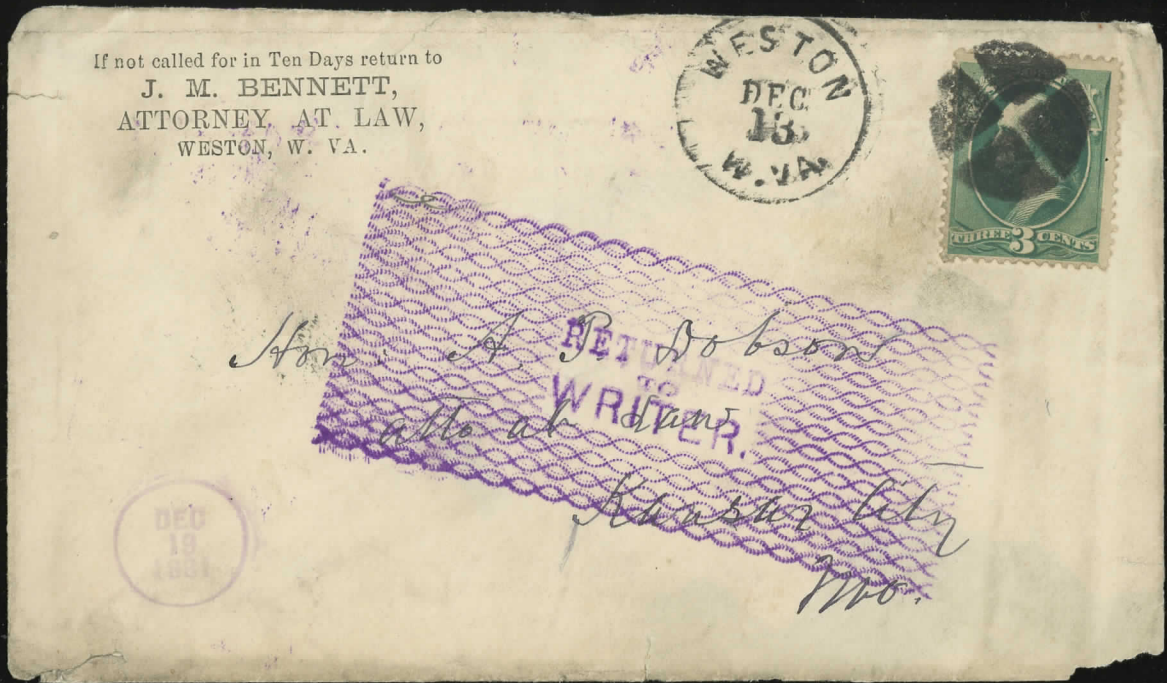 If not called for in Ten Days return to
J. M. BENNETT,
ATTORNEY AT LAW,
WESTON, W. VA.
WESTON
DEC
13
W. VA.
THREE 3 CENTS
RETURNED
TO
WRITER.
Hon. A P Dobson
atto at Law
Kansas City
Mo.
DEC
19
1881